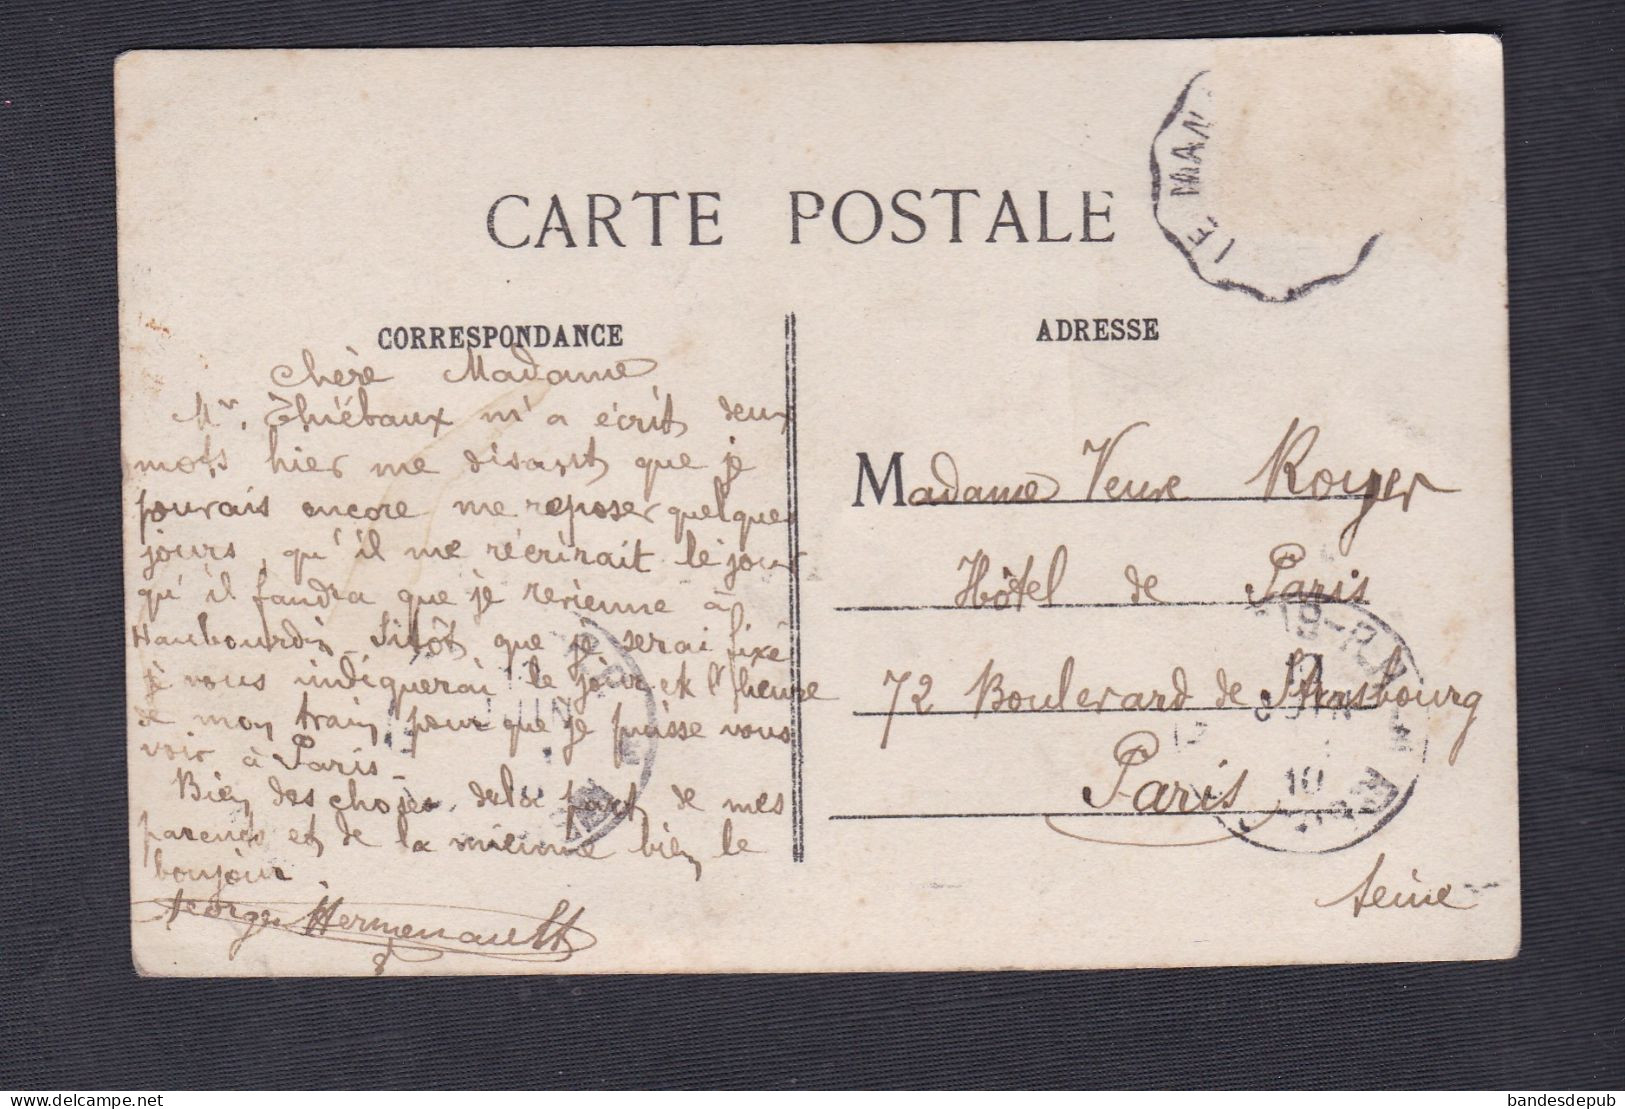 CARTE POSTALE
LE MAN
CORRESPONDANCE
Chère Madame
Mr. Thiébaux m'a écrit deux
mots hier me disant que je
pouvais encore me reposer quelques
jours, qu'il me récrirait le jour
qu'il faudra que je revienne à
Haubourdin. Sitôt que je serai fixé
je vous indiquerai le jour et l'heure
de mon train pour que je puisse vous
voir à Paris -
Bien des choses de la part de mes
parents et de la mienne bien le
bonjour
Georges Hermenault
ADRESSE
Madame Veuve Royer
Hôtel de Paris
72 Boulevard de Strasbourg
Paris
Seine
JUIN
10
delcampe.net
bandesdepub